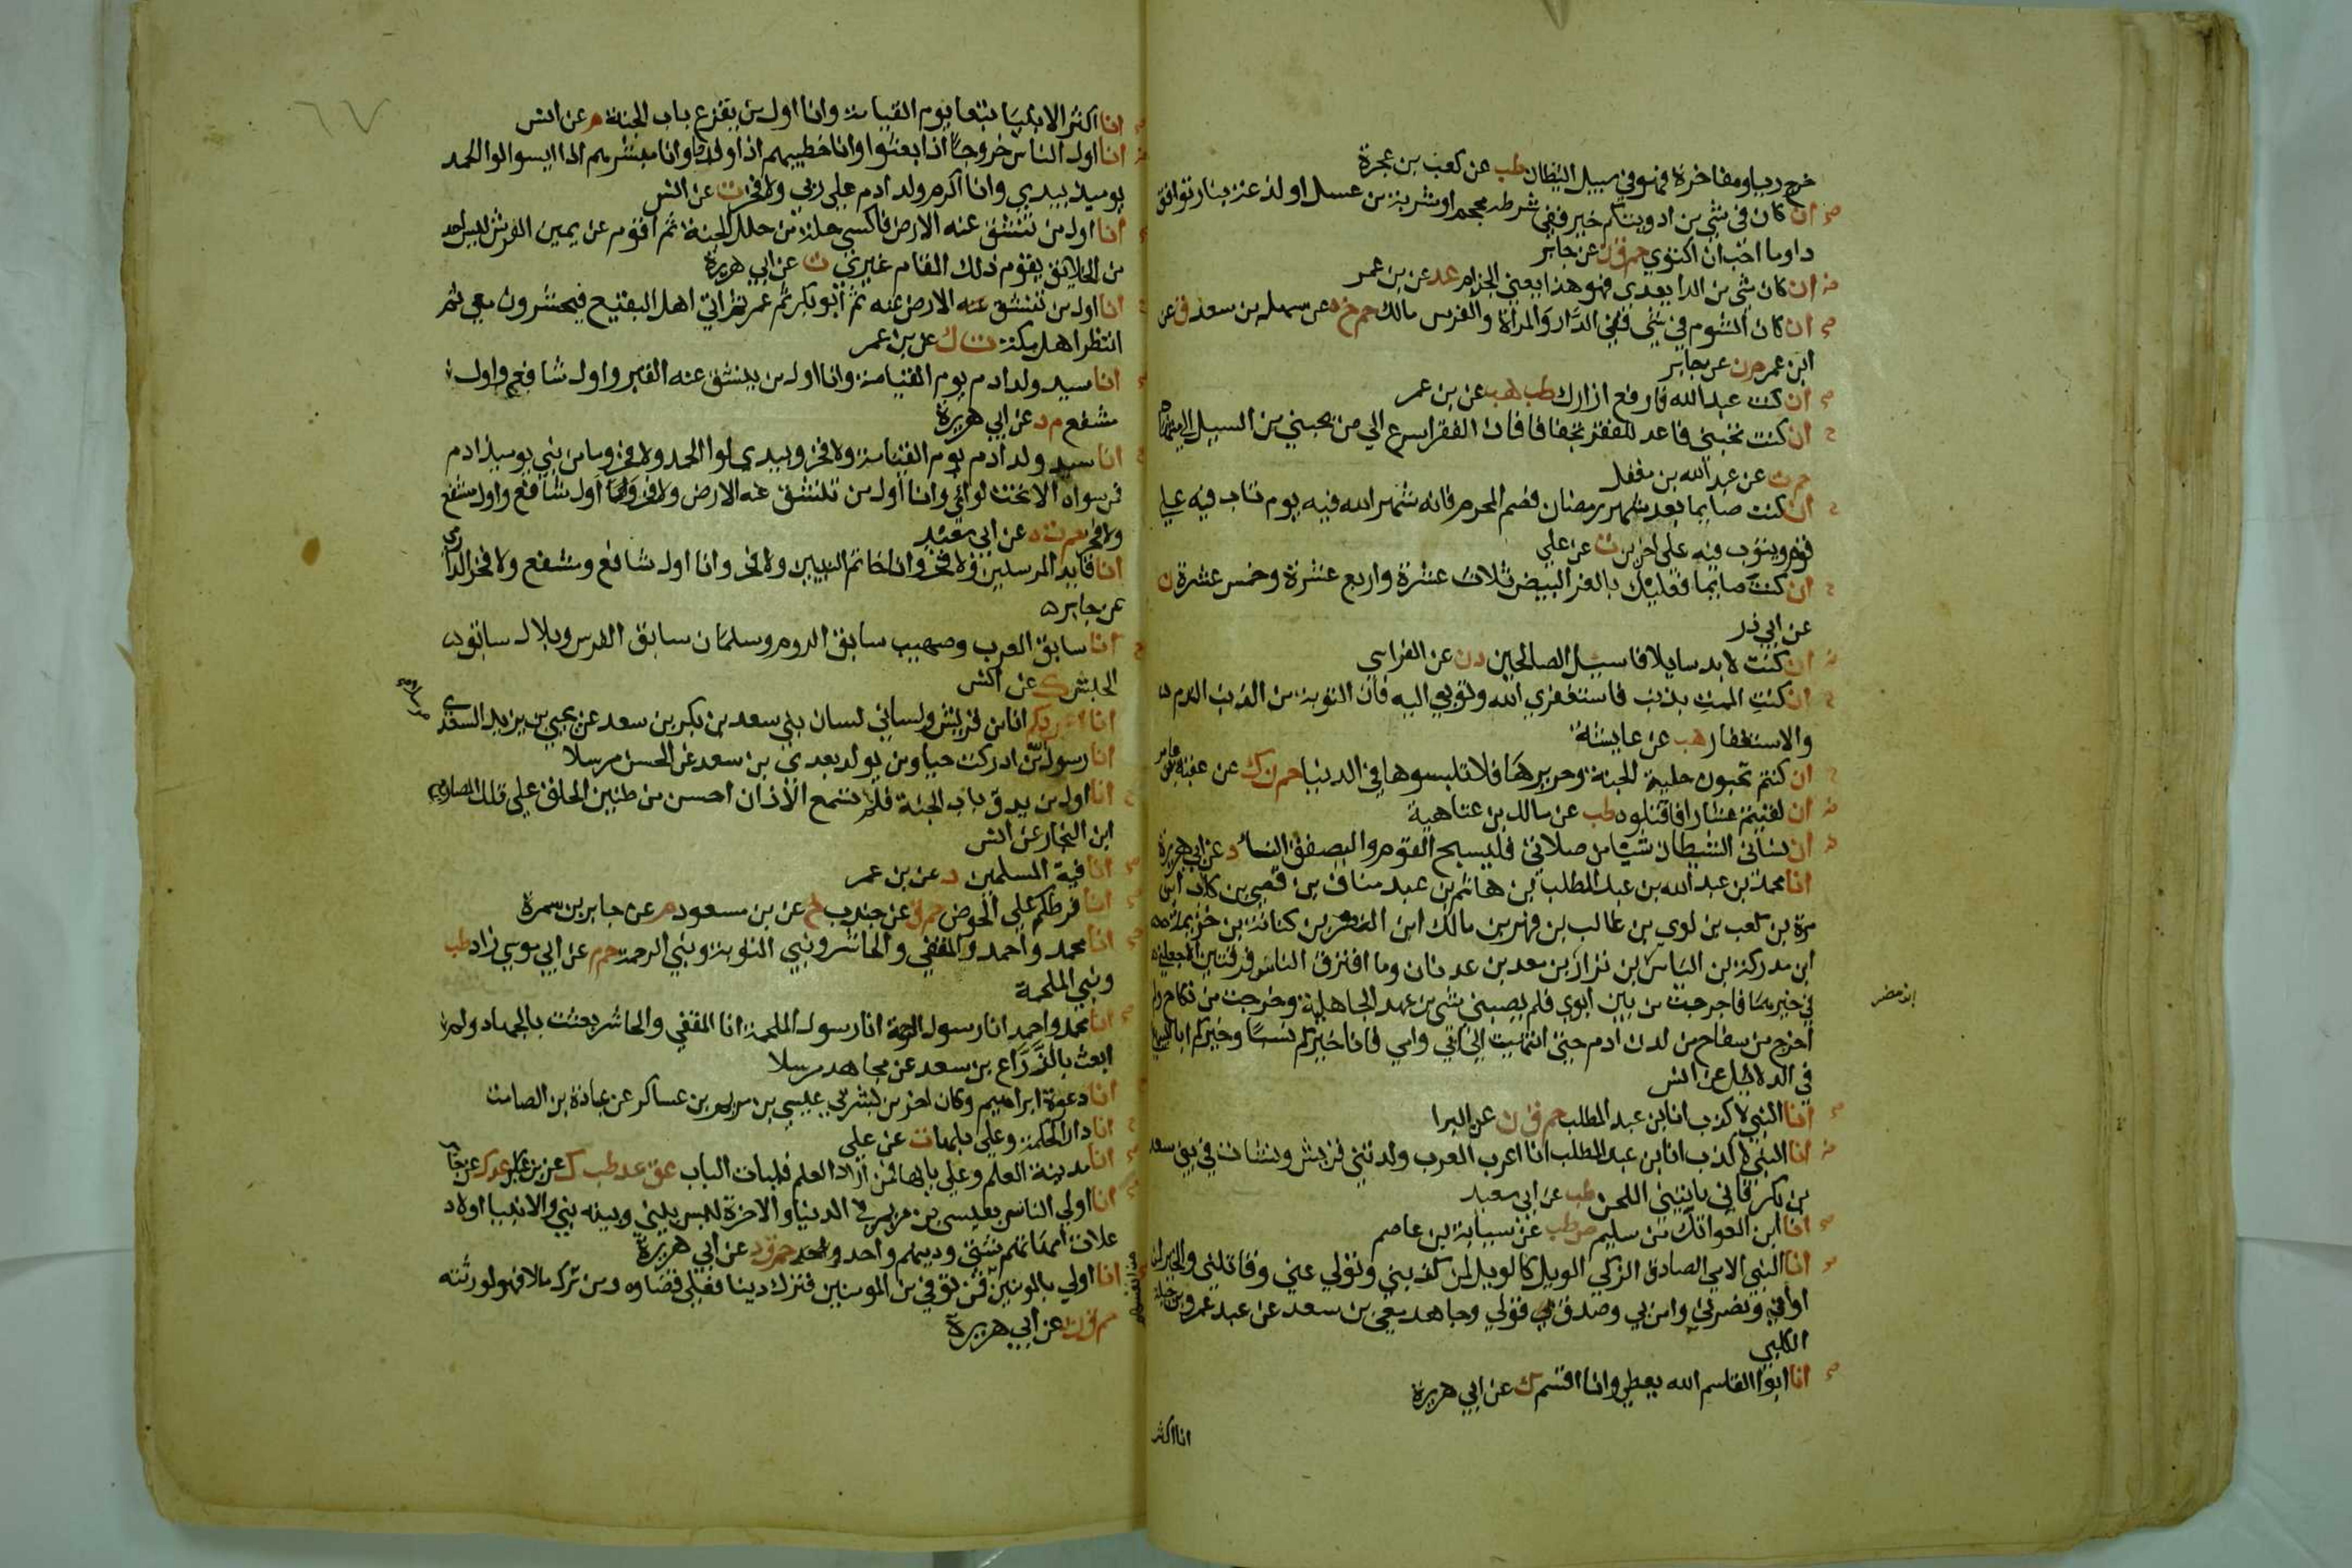 خرج رياء ومفاخرة فهو في سبيل الشيطان طب عن كعب بن عجرة
ان كان في شي من ادويتكم خير ففي شرطة محجم او شربة من عسل او لذعة بنار توافق
داء وما احب ان اكتوي حم ق ن عن جابر
ان كان شي من الداء يعدي فهو هذا يعني الجذام عد عن بن عمر
ان كان الشوم في شي ففي الدار والمراة والفرس مالك حم خ ه عن سهل بن سعد ق عن
ابن عمر م ن عن جابر
ان كنت عبد الله فارفع ازارك طب هب عن بن عمر
ان كنت تحبني فاعد للفقر تجفافا فان الفقر اسرع الي من يحبني من السيل الي منتهاه
حم ت عن عبد الله بن مغفل
ان كنت صايما بعد شهر رمضان فصم المحرم فانه شهر الله فيه يوم تاب فيه علي
قوم ويتوب فيه علي اخرين ت عن علي
ان كنت صايما فعليك بالغر البيض ثلاث عشرة واربع عشرة وخمس عشرة ن
عن ابي ذر
ان كنت لابد سايلا فاسيل الصالحين د ن عن الفراسي
ان كنت الممت بذنب فاستغفري الله وتوبي اليه فان التوبة من الذنب الندم
والاستغفار هب عن عايشة
ان كنتم تحبون حلية الجنة وحريرها فلا تلبسوها في الدنيا حم ن ك عن عقبة بن عامر
ان لقيتم عشارا فاقتلوه طب عن مالك بن عتاهية
ان نساني الشيطان شيا من صلاتي فليسبح القوم وليصفق النساء د عن ابي هريرة
انا محمد بن عبد الله بن عبد المطلب بن هاشم بن عبد مناف بن قصي بن كلاب ابن
مرة بن كعب بن لوي بن غالب بن فهر بن مالك ابن النضر بن كنانة بن خزيمة
ابن مدركة بن الياس بن نزار بن معد بن عدنان وما افترق الناس فرقتين الا جعلني
في خيرهما فاخرجت من بين ابوي فلم يصبني شي من عهد الجاهلية وخرجت من نكاح ولم
اخرج من سفاح من لدن ادم حتي انتهيت الي ابي وامي فانا خيركم نسبا وخيركم ابا
في الدلائل عن انس
انا النبي لا كذب انا بن عبد المطلب حم ق ن عن البرا
انا النبي لا كذب انا بن عبد المطلب انا اعرب العرب ولدتني قريش ونشات في بني سعد
بن بكر فاني ياتيني اللحن طب عن ابي سعيد
انا ابن العواتك من سليم ص طب عن سيابة بن عاصم
انا النبي الامي الصادق الزكي الويل كل الويل لمن كذبني وتولي عني وقاتلني والخير لمن
اواني ونصرني وامن بي وصدق قولي وجاهد معي بن سعد عن عبد عمرو بن جبلة
الكلبي
انا ابوا القاسم الله يعطي وانا اقسم ك عن ابي هريرة
انا اكثر
ابن مضر
٦٧
انا اكثر الانبيا تبعا يوم القيامة وانا اول من يقرع باب الجنة م عن انس
انا اول الناس خروجا اذا بعثوا وانا خطيبهم اذا وفدوا وانا مبشرهم اذا ايسوا لوا الحمد
يوميذ بيدي وانا اكرم ولد ادم علي ربي ولا فخر ت عن انس
انا اول من تنشق عنه الارض فاكسي حلة من حلل الجنة ثم اقوم عن يمين العرش ليس احد
من الخلايق يقوم ذلك المقام غيري ت عن ابي هريرة
انا اول من تنشق عنه الارض عنه ثم ابو بكر ثم عمر ثم اتي اهل البقيع فيحشرون معي ثم
انتظر اهل مكة ت ك عن بن عمر
انا سيد ولد ادم يوم القيامة وانا اول من ينشق عنه القبر واول شافع واول
مشفع م د عن ابي هريرة
انا سيد ولد ادم يوم القيامة ولا فخر وبيدي لوا الحمد ولا فخر وما من نبي يوميذ ادم
فمن سواه الا تحت لوائي وانا اول من تنشق عنه الارض ولا فخر وانا اول شافع واول مشفع
ولا فخر حم ت ه عن ابي سعيد
انا قايد المرسلين ولا فخر وانا خاتم النبيين ولا فخر وانا اول شافع ومشفع ولا فخر الدارمي
عن جابر
انا سابق العرب وصهيب سابق الروم وسلمان سابق الفرس وبلال سابق
الحبش ك عن انس
انا اعربكم انا من قريش ولساني لسان بني سعد بن بكر بن سعد عن يحيي بن يزيد السعدي
انا رسول من ادركت حيا ومن يولد بعدي بن سعد عن الحسن مرسلا
انا اول من يدق باب الجنة فلم تسمع الاذان احسن من طنين الحلق علي تلك المصاريع
ابن النجار عن انس
انا فية المسلمين د عن بن عمر
انا فرطكم علي الحوض حم ق عن جندب خ عن بن مسعود م عن جابر بن سمرة
انا محمد واحمد والمقفي والحاشر ونبي التوبة ونبي الرحمة حم م عن ابي موسي زاد طب
ونبي الملحمة
انا محمد واحمد انا رسول الرحمة انا رسول الملحمة انا المقفي والحاشر بعثت بالجهاد ولم
ابعث بالزراع بن سعد عن مجاهد مرسلا
انا دعوة ابراهيم وكان اخر من بشر بي عيسي بن مريم بن عساكر عن عبادة بن الصامت
انا دار الحكمة وعلي بابها ت عن علي
انا مدينة العلم وعلي بابها فمن اراد العلم فليات الباب عق عد طب ك عن بن عباس عد ك عن جابر
انا اولي الناس بعيسي بن مريم في الدنيا والاخرة ليس بيني وبينه نبي والانبيا اولاد
علات امهاتهم شتي ودينهم واحد حم ق د عن ابي هريرة
انا اولي بالمومنين من انفسهم فمن توفي من المومنين فترك دينا فعلي قضاوه ومن ترك مالا فهو لورثته
حم ق ن عن ابي هريرة